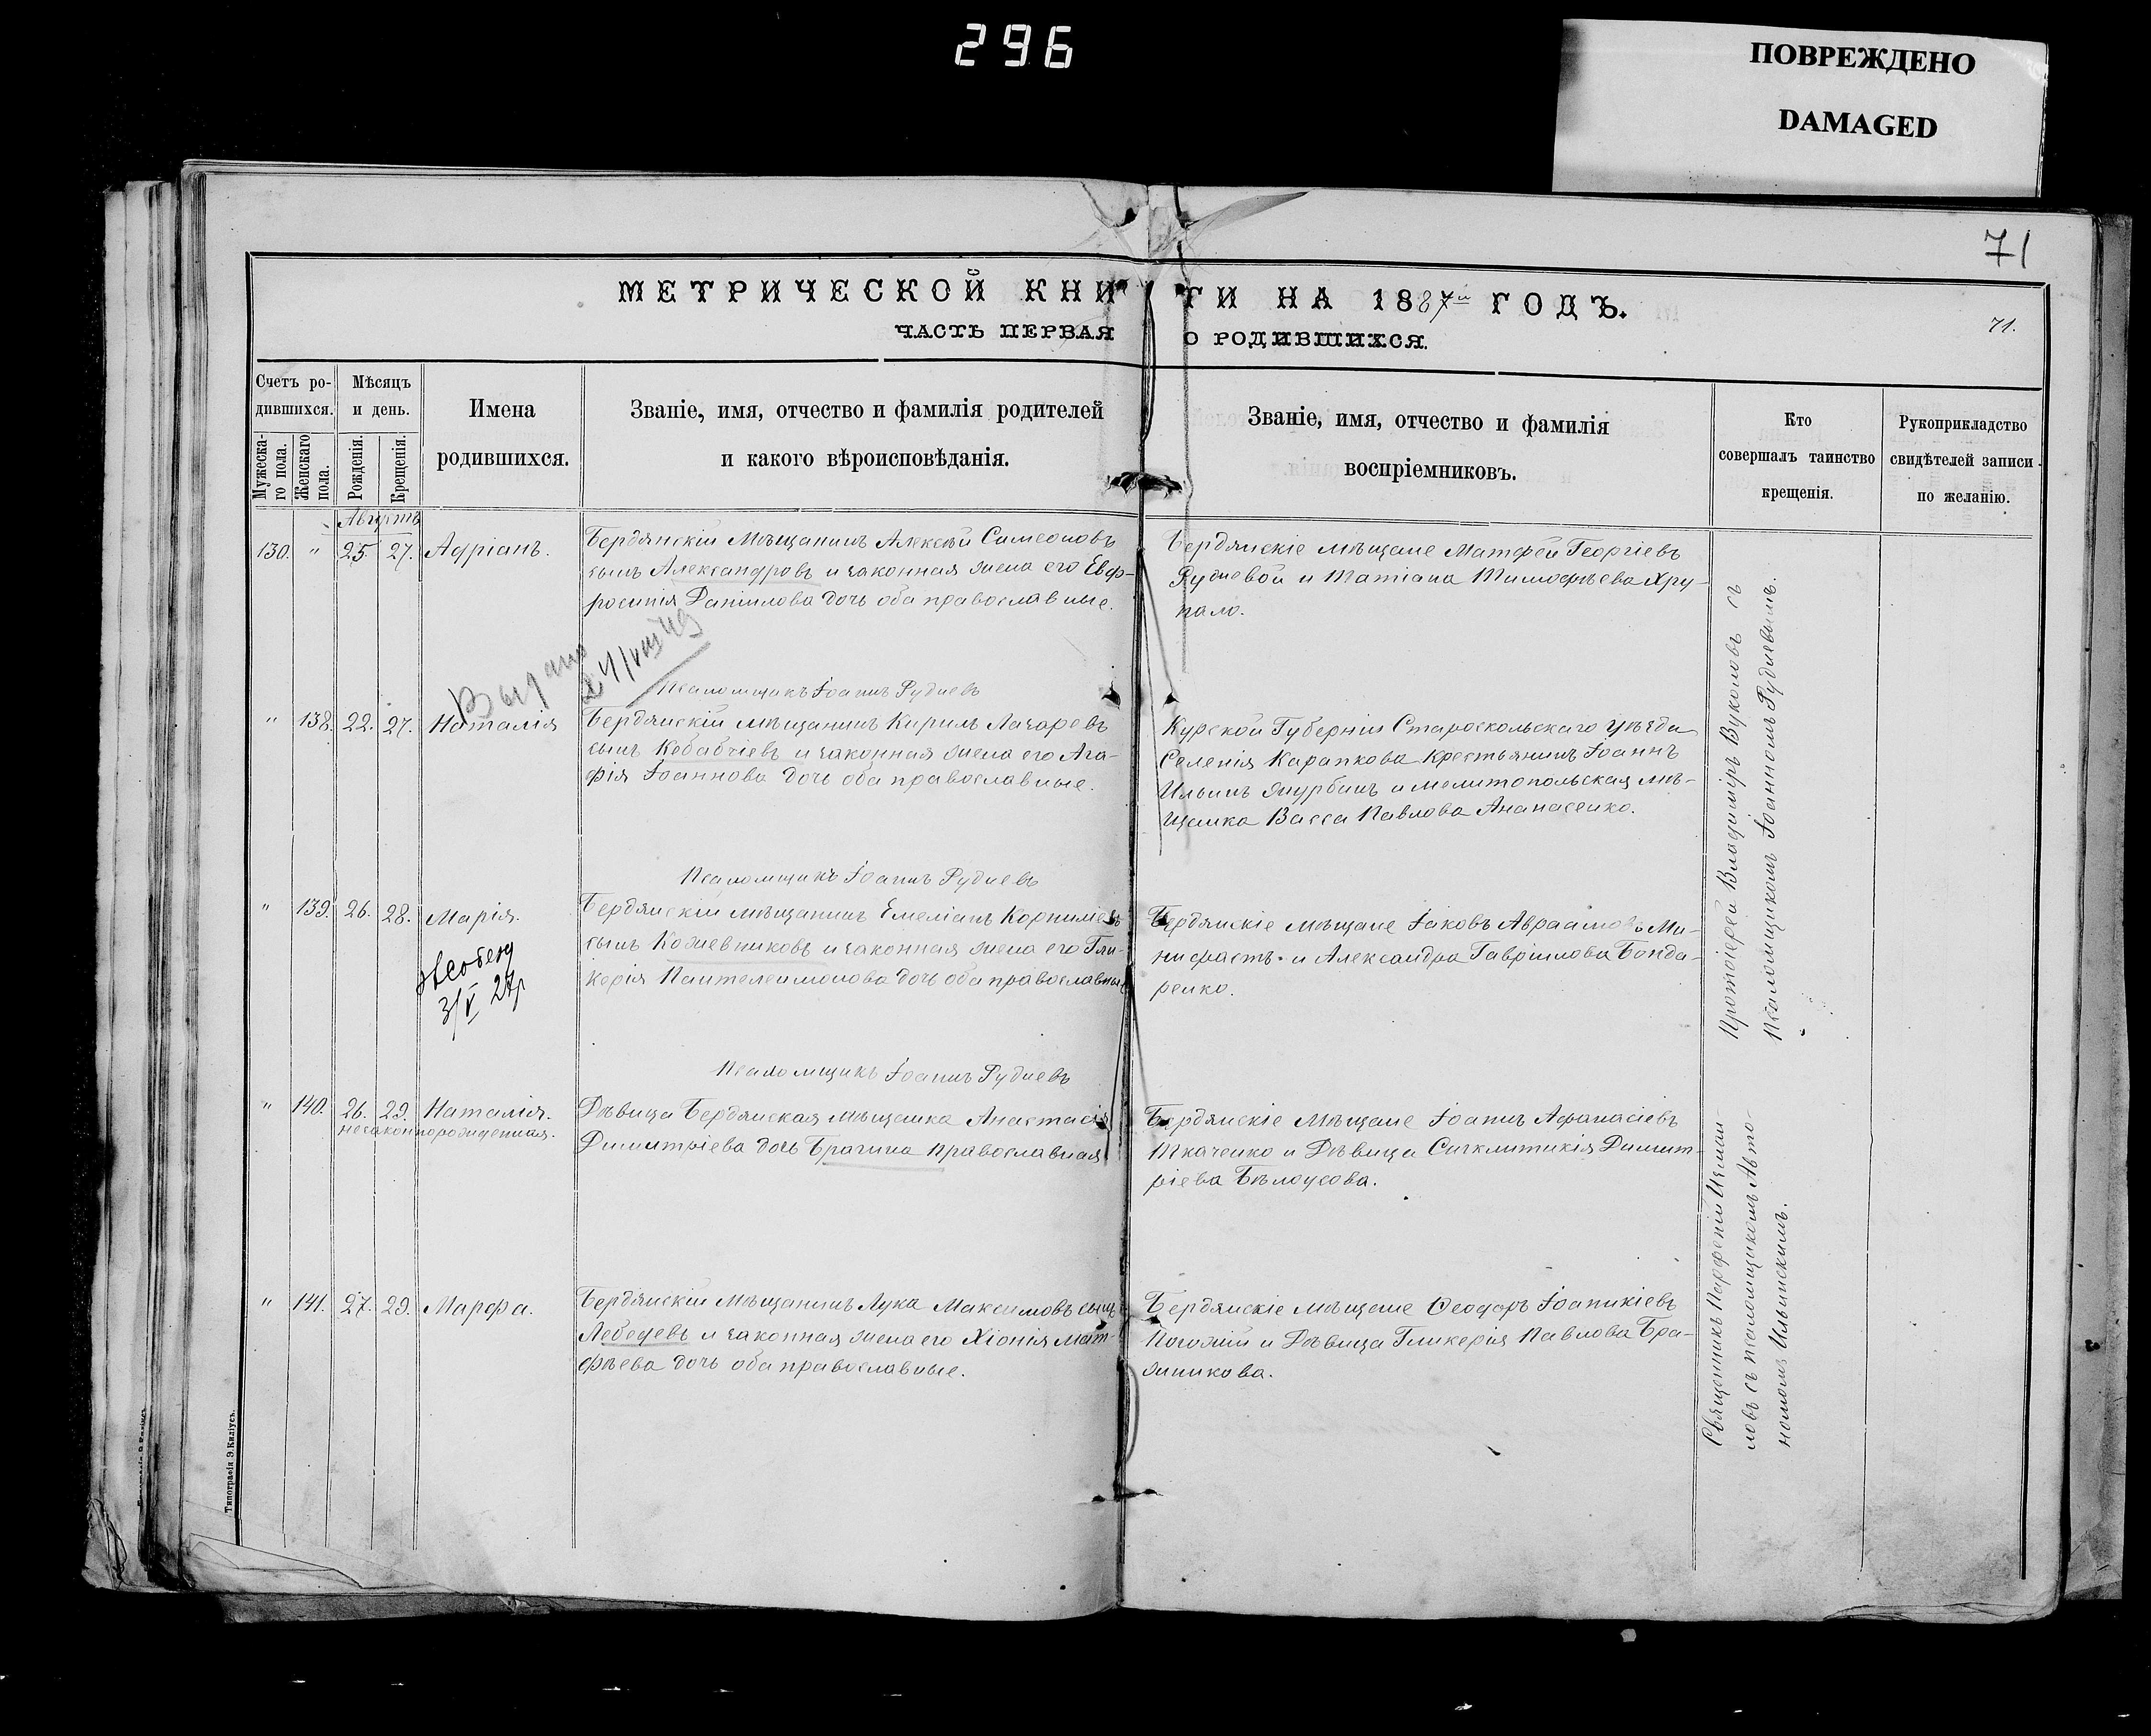 296
ПОВРЕЖДЕНО
DAMAGED
71
МЕТРИЧЕСКОЙ КНИГИ НА 1887й ГОДЪ.
ЧАСТЬ ПЕРВАЯ О РОДИВШИХСЯ.
71.
Счетъ ро-
дившихся.
Мужеска-
го пола.
Женскаго
пола.
Мѣсяцъ
и день.
Рожденія.
Крещенія.
Имена
родившихся.
Званіе, имя, отчество и фамилія родителей
и какого вѣроисповѣданія.
Званіе, имя, отчество и фамилія
воспріемниковъ.
Кто
совершалъ таинство
крещенія.
Рукоприкладство
свидѣтелей записи
по желанію.
Августъ
130. " 25 27. Адріанъ.
Бердянскій Мѣщанинъ Алексѣй Симеоновъ
сынъ Александровъ и законная жена его Евф-
росинія Даніилова дочь оба православные.
Бердянскіе мѣщане Матфей Георгіевъ
Рудневой и Татіана Тимофѣева Хру-
пало.
Выдано
24/VIII
Псаломщикъ Іоаннъ Рудневъ
" 138. 22. 27. Наталія
Бердянскій мѣщанинъ Кирилъ Лазаревъ
сынъ Кебабчіевъ и законная жена его Ага-
фія Іоаннова дочь оба православные.
Курской Губерніи Старооскольскаго уѣзда
Селенія Карапкова Крестьянинъ Іоаннъ
Ильинъ Журбинъ и мелитопольская мѣ-
щанка Васса Павлова Ананасенко.
Псаломщикъ Іоаннъ Рудневъ
" 139. 26. 28. Марія.
3/V 27г
Бердянскій мѣщанинъ Емеліанъ Корниліевъ
сынъ Кожевниковъ и законная жена его Гли-
керія Пантелеимонова дочь оба православные
Бердянскіе Мѣщане Іаковъ Авраамовъ Ми-
нифастъ и Александра Гавріилова Бонда-
ренко.
Псаломщикъ Іоаннъ Рудневъ
" 140. 26. 29. Наталія.
незаконнорожденная.
Дѣвица Бердянская Мѣщанка Анастасія
Димитріева дочь Брагина православная
Бердянскіе Мѣщане Іоаннъ Афанасіевъ
Ткаченко и Дѣвица Сигклитикія Димит-
ріева Бѣлоусова.
" 141. 27. 29. Марфа.
Бердянскій Мѣщанинъ Лука Максимовъ сынъ
Лебедевъ и законная жена его Хіонія Мат-
фѣева дочь оба православные.
Бердянскіе мѣщане Ѳеодоръ Іоаникіевъ
Погожій и Дѣвица Гликерія Павлова Бра-
жникова.
Протоіерей Владиміръ Вуколовъ съ
Псаломщикомъ Іоанномъ Рудневымъ.
Священникъ Порфирій Измаи-
ловъ съ псаломщикомъ Авто-
номомъ Ильинскимъ.
Типографія Э.Киліусъ.